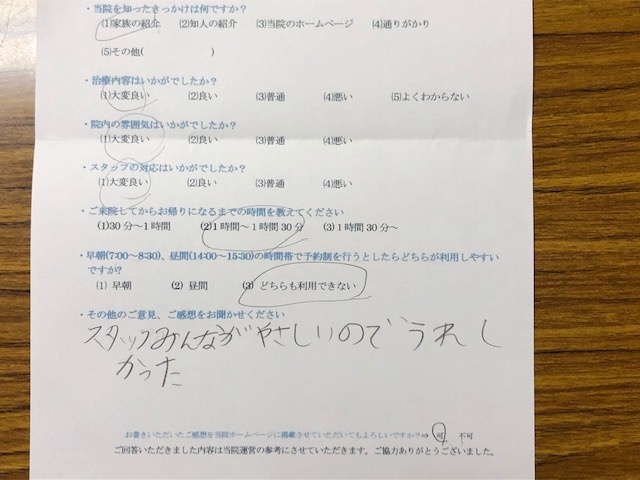 ・当院を知ったきっかけは何ですか？
(1)家族の紹介 (2)知人の紹介 (3)当院のホームページ (4)通りがかり
(5)その他( )
・治療内容はいかがでしたか？
(1)大変良い (2)良い (3)普通 (4)悪い (5)よくわからない
・院内の雰囲気はいかがでしたか？
(1)大変良い (2)良い (3)普通 (4)悪い
・スタッフの対応はいかがでしたか？
(1)大変良い (2)良い (3)普通 (4)悪い
・ご来院してからお帰りになるまでの時間を教えてください
(1)30分～1時間 (2)1時間～1時間30分 (3)1時間30分～
・早朝(7:00～8:30)、昼間(14:00～15:30)の時間帯で予約制を行うとしたらどちらが利用しやすい
ですか?
(1) 早朝 (2) 昼間 (3) どちらも利用できない
・その他のご意見、ご感想をお聞かせください
スタッフみんながやさしいのでうれし
かった
お書きいただいたご感想を当院ホームページに掲載させていただいてもよろしいですか？⇒ 可 不可
ご回答いただきました内容は当院運営の参考にさせていただきます。ご協力ありがとうございました。